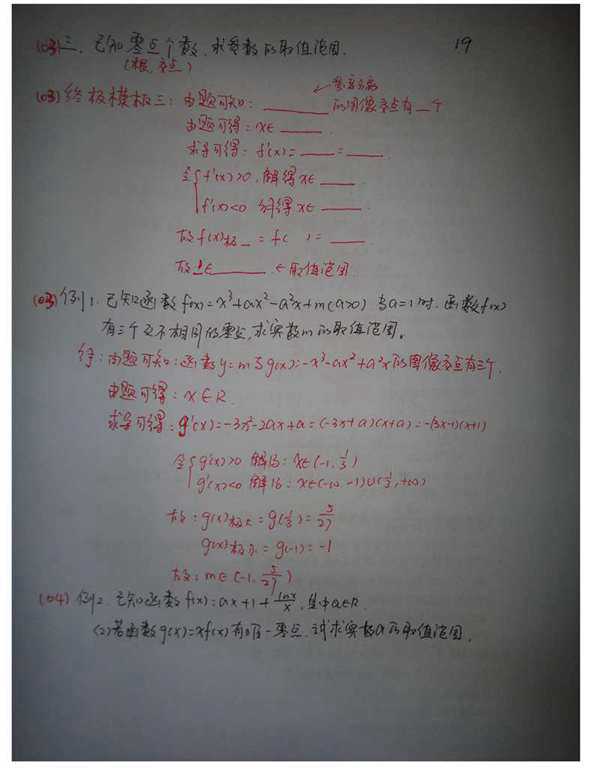 (03) 三、已知零点个数,求参数的取值范围. 19
(根、交点)
(03) 终极模板三: 由题可知: ______ 的图像交点有__个
由题可得: x∈ ____.
求导可得: f'(x)= ____ = ____.
令 { f'(x)>0, 解得 x∈ ____
f'(x)<0 解得 x∈ ____.
故 f(x)极_ = f( ) = ____
故 ∈ ______ ← 取值范围
(03) 例1. 已知函数 f(x)=x³+ax²-a²x+m (a>0) 当a=1时. 函数f(x)
有三个互不相同的零点, 求实数m的取值范围。
解: 由题可知: 函数 y=m 与 g(x)=-x³-ax²+a²x 的图像交点有三个.
由题可得: x∈R
求导可得: g'(x)=-3x²-2ax+a=(-3x+a)(x+a)=-(3x-1)(x+1)
令 { g'(x)>0 解得: x∈(-1, 1/3)
g'(x)<0 解得: x∈(-∞, -1)∪(1/3, +∞)
故: g(x)极大=g(1/3)=5/27
g(x)极小=g(-1)=-1
故: m∈(-1, 5/27)
(04) 例2. 已知函数 f(x)=ax+1+lnx/x, 其中a∈R.
(2)若函数g(x)=xf(x)有唯一零点, 试求实数a的取值范围.